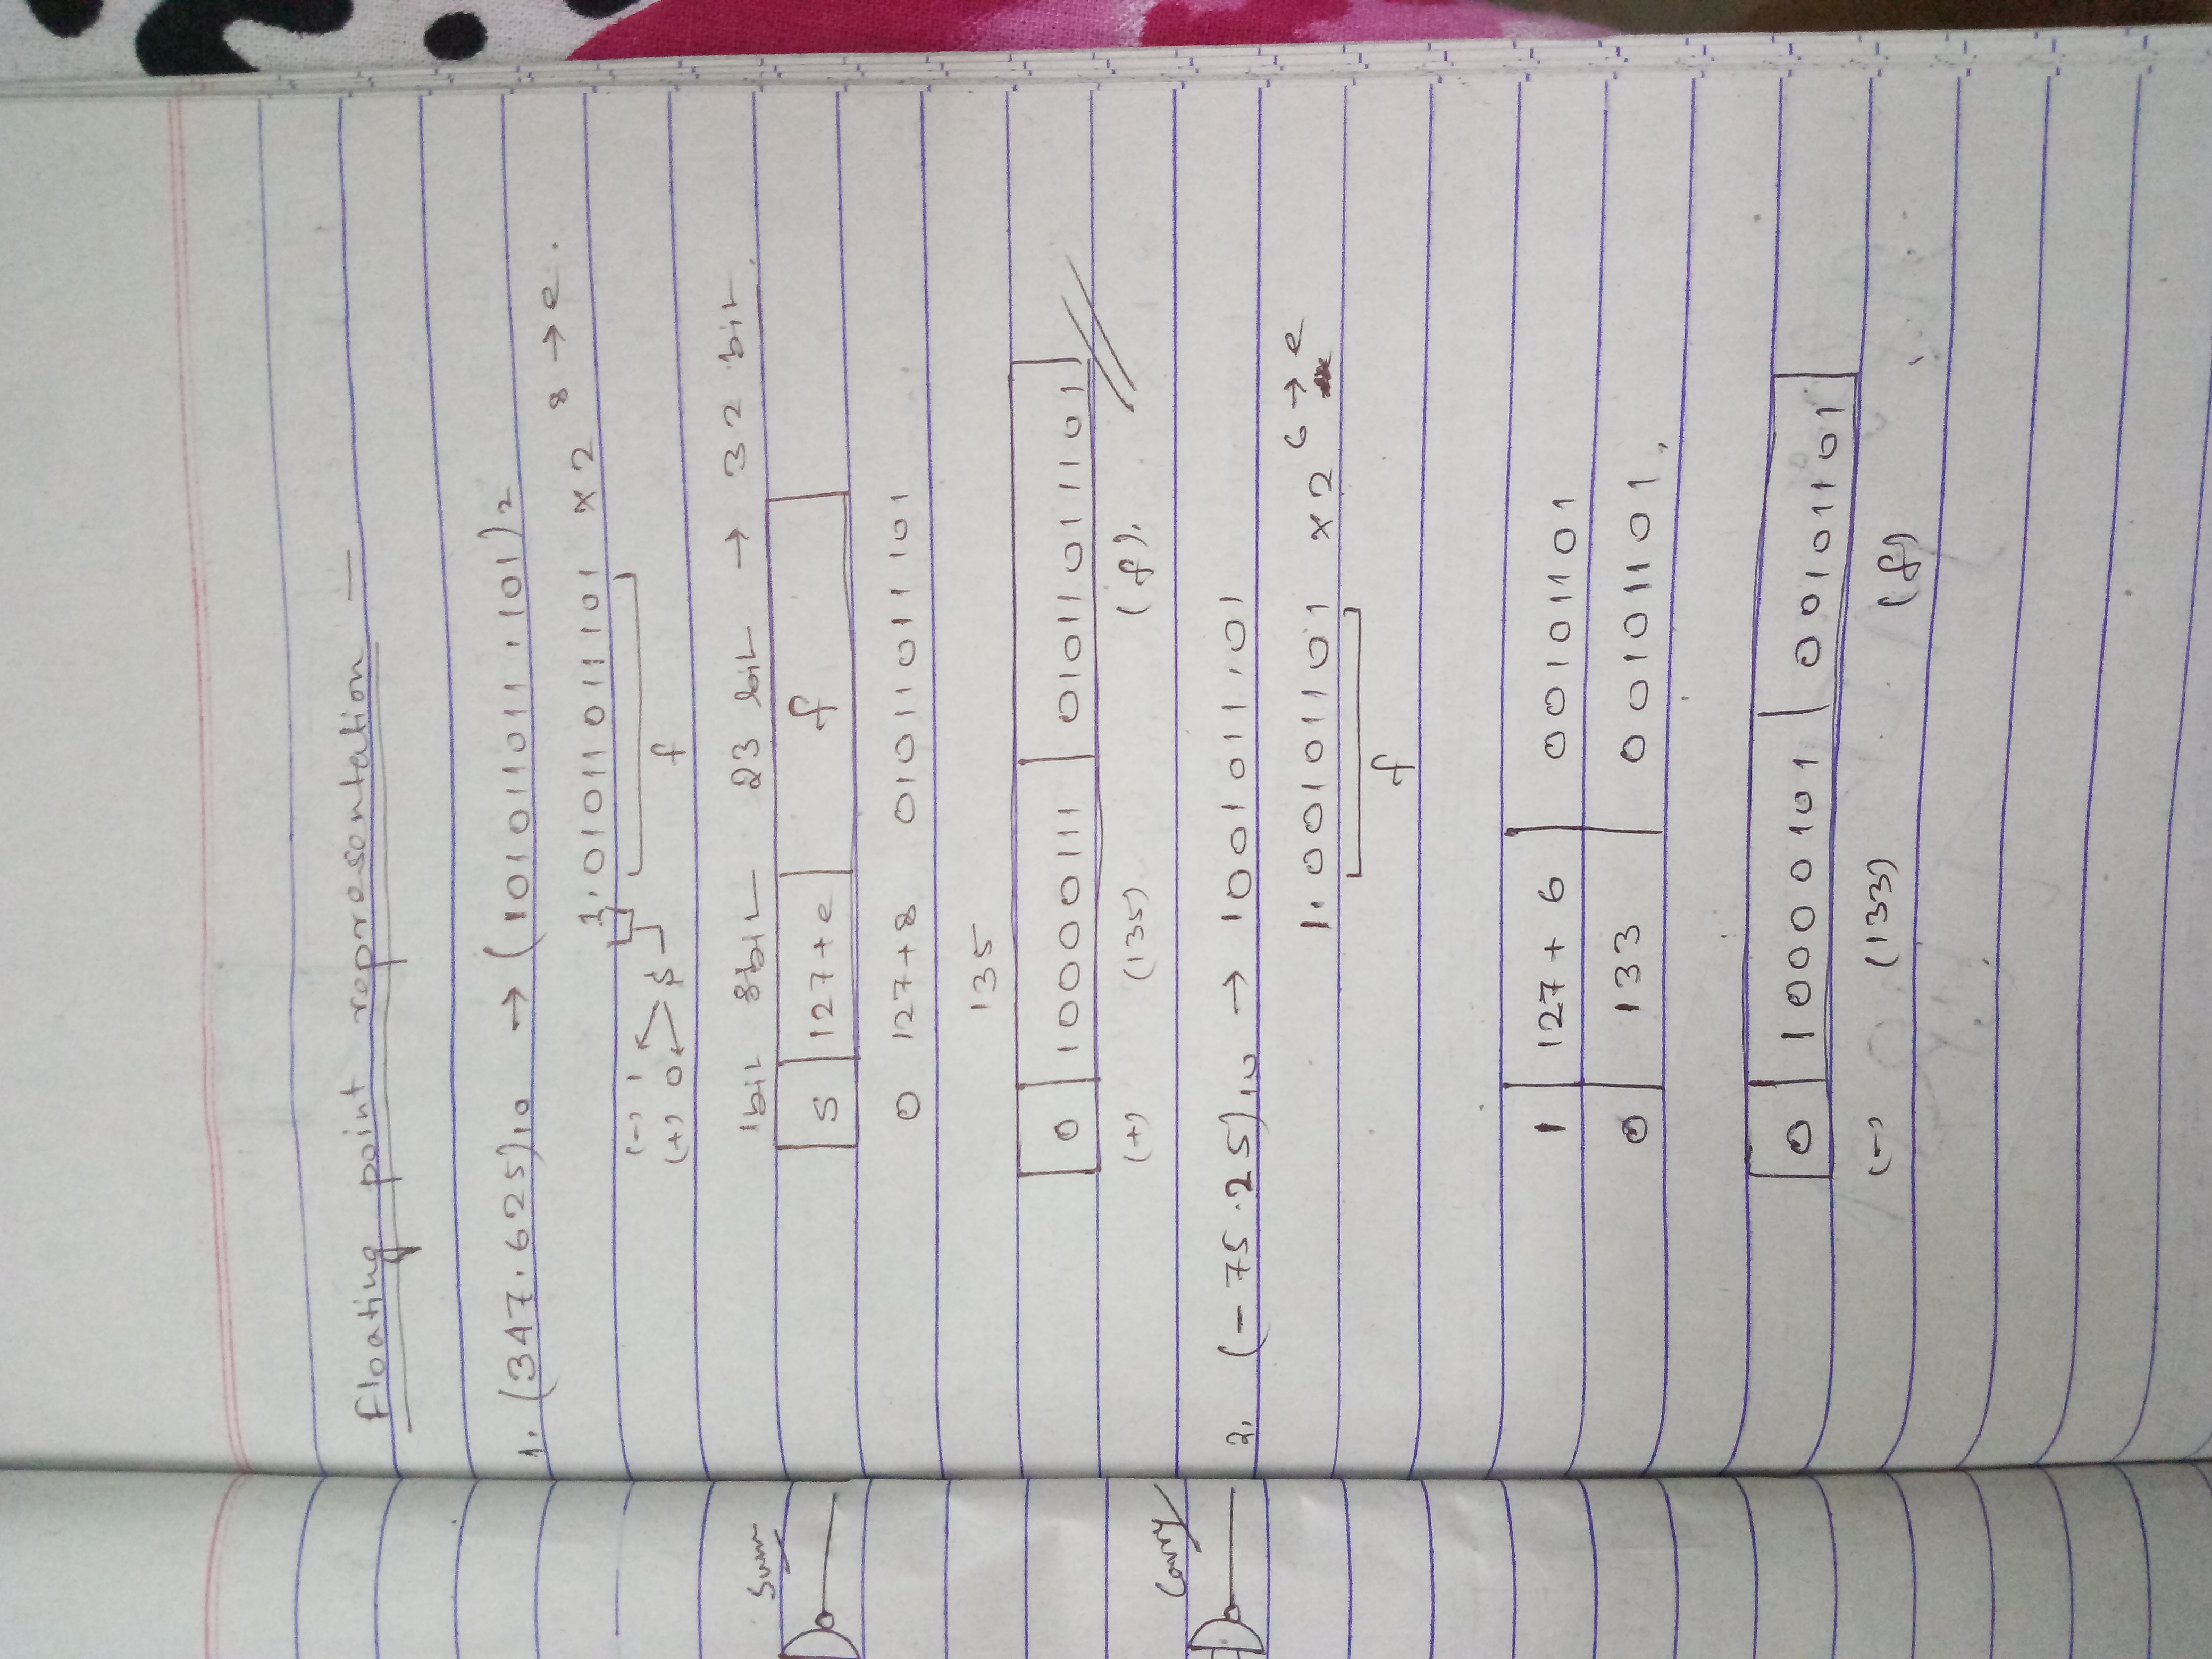 Sum
Carry
Floating point representation —
1. (347.625)10 → (101011011.101)2
1.01011011101 × 2 8 → e.
(-) 1
(+) 0 s f
1bit 8bit 23 bit → 32 bit.
s 127+e f
0 127+8 01011011101
135
0 10000111 01011011101
(+) (135) (f).
2. (-75.25)10 → 1001011.01
1.00101101 × 2 6 → e
f
1 127+6 00101101
0 133 00101101.
0 10000101 00101101
(-) (133) (f)